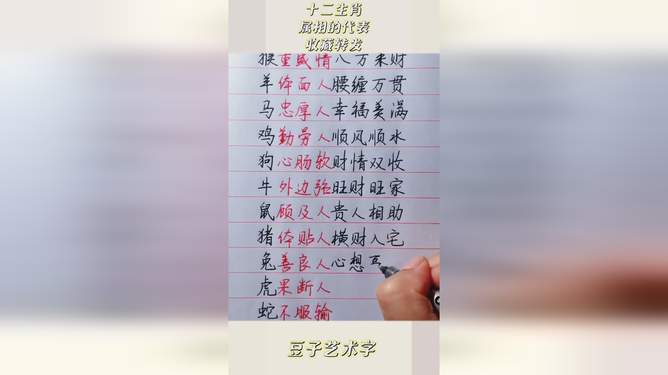 十二生肖
属相的代表
收藏转发
猴重感情八方来财
羊体面人腰缠万贯
马忠厚人幸福美满
鸡勤劳人顺风顺水
狗心肠软财情双收
牛外边强旺财旺家
鼠顾及人贵人相助
猪体贴人横财入宅
兔善良人心想
虎果断人
蛇不服输
豆子艺术字